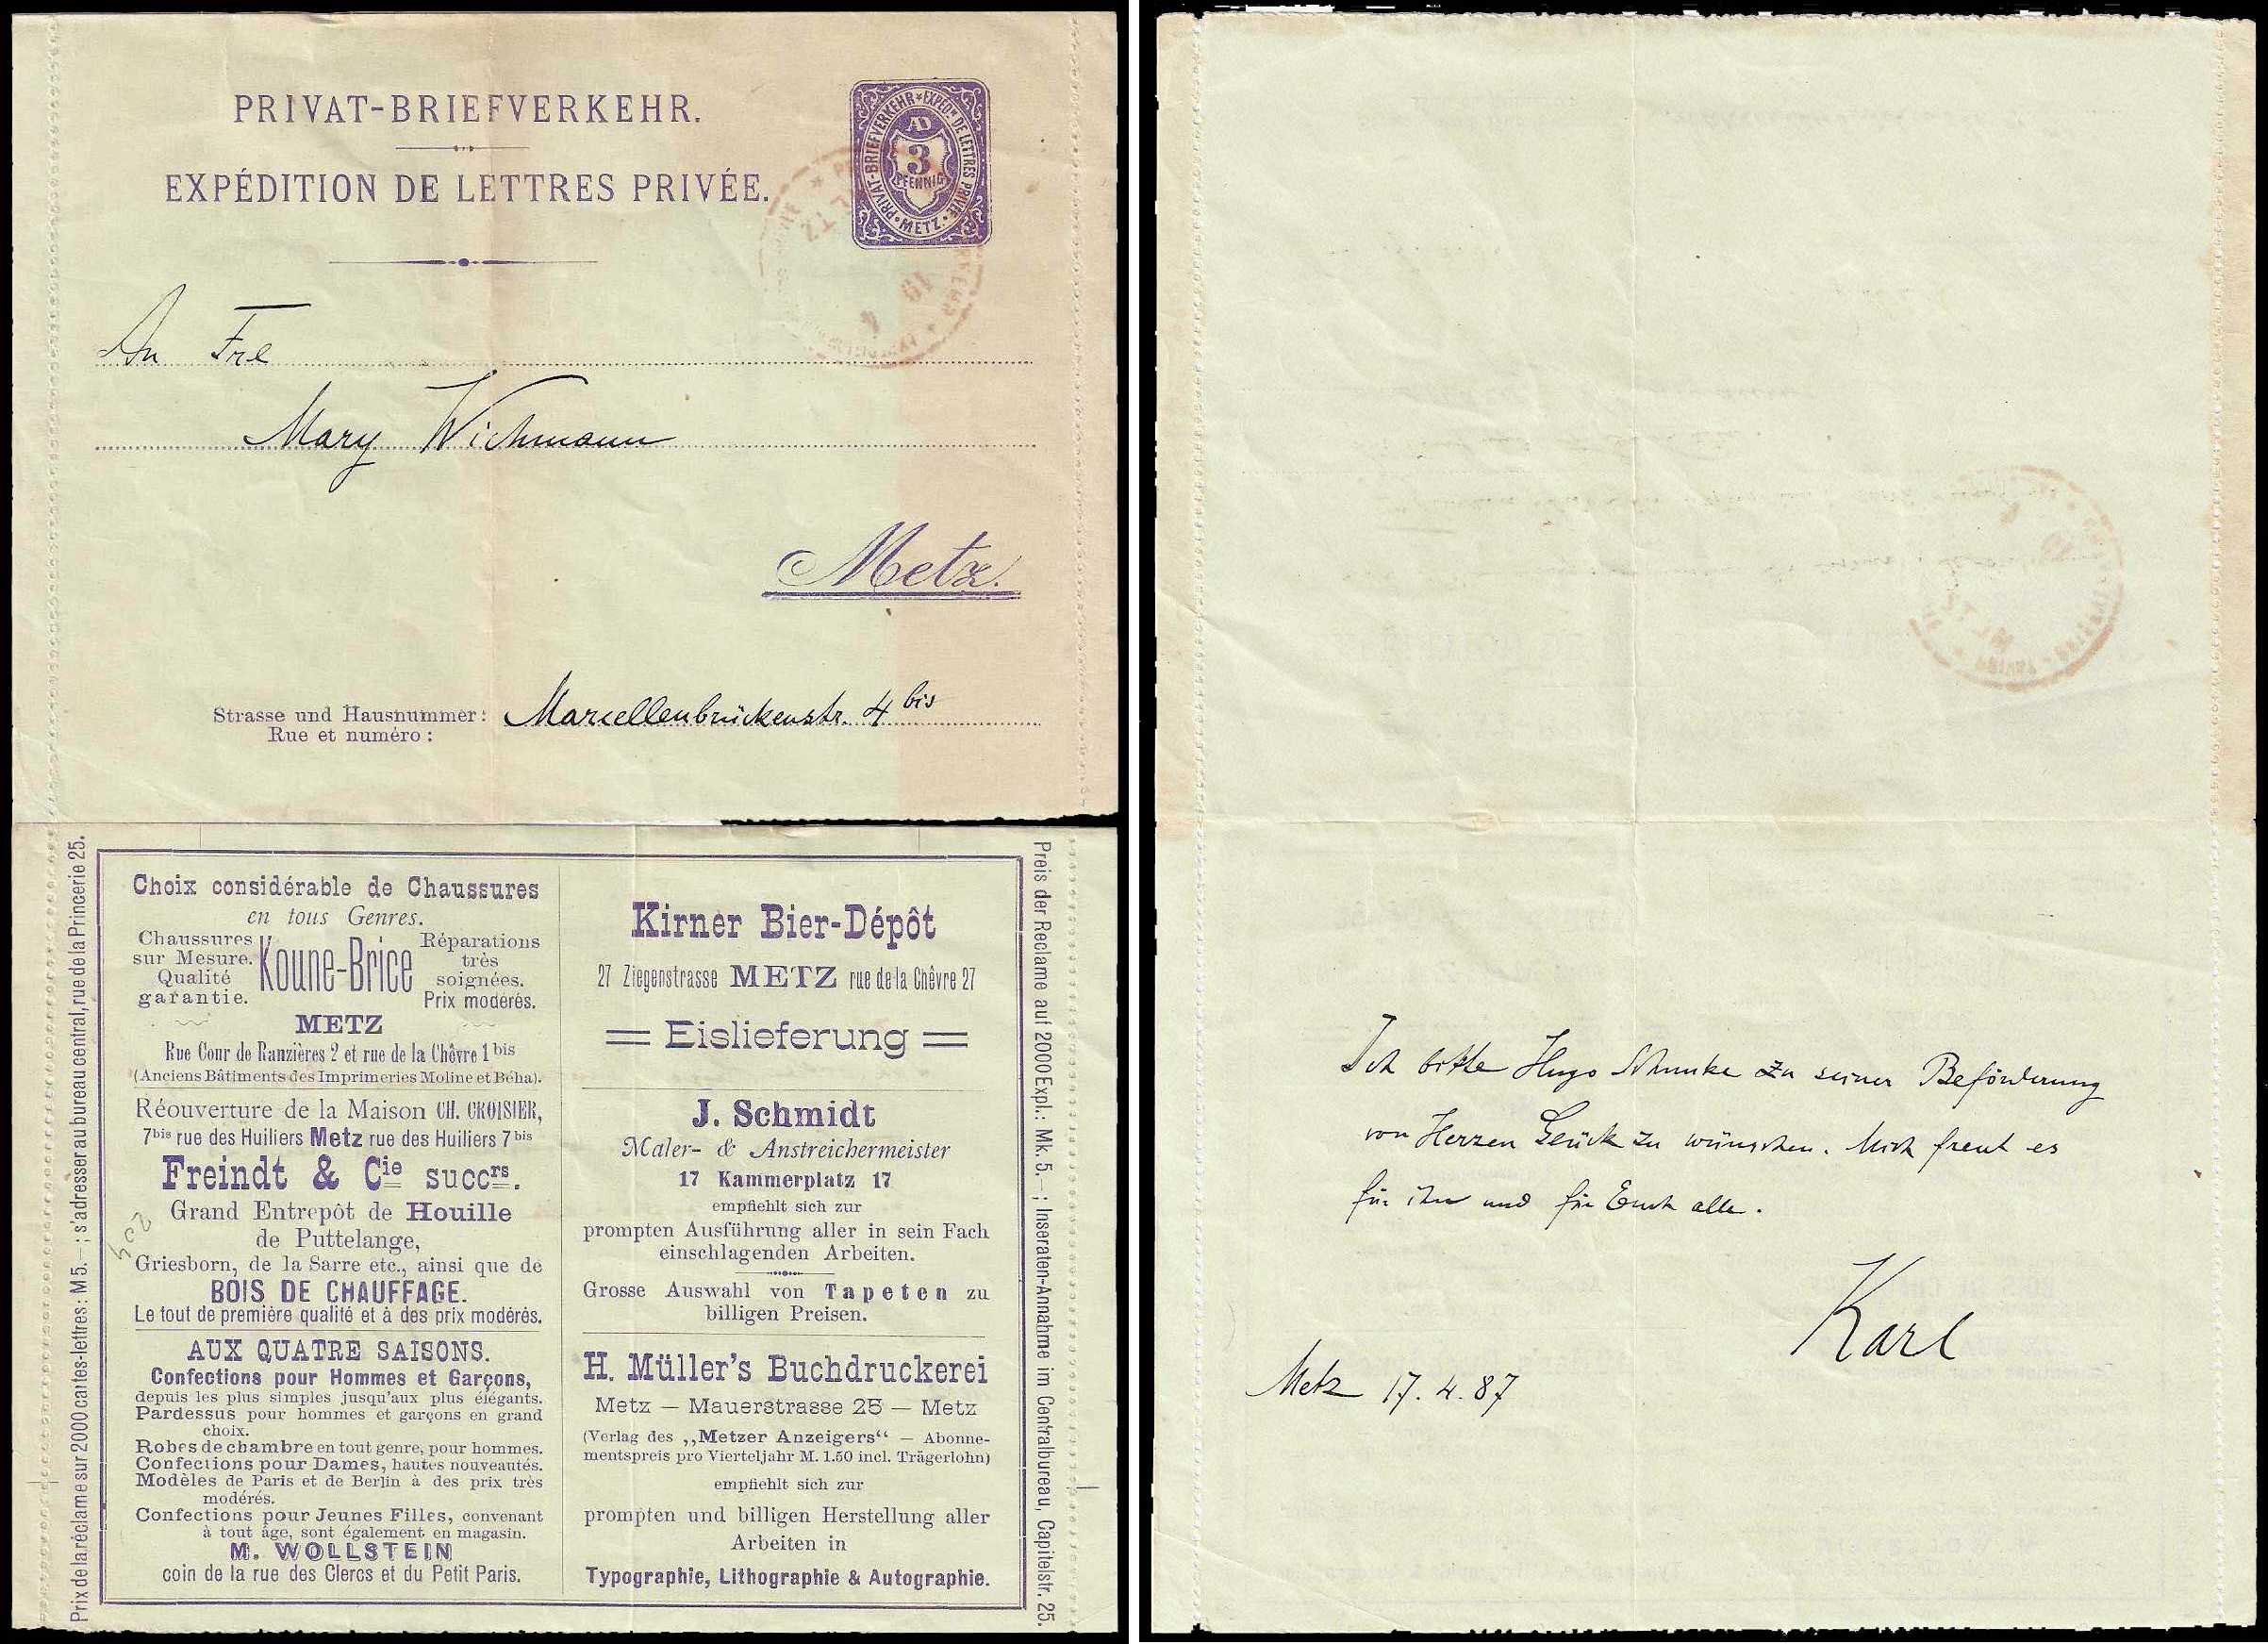 PRIVAT-BRIEFVERKEHR.
EXPÉDITION DE LETTRES PRIVÉE.
PRIVAT-BRIEFVERKEHR * EXPEDon DE LETTRES PRIVÉE * METZ.
AD
3
PFENNIG
An Frl
Mary Wichmann
Metz.
Strasse und Hausnummer: Marcellenbrückenstr. 4 bis
Rue et numéro :
Prix de la réclame sur 2000 cartes-lettres: M 5. — ; s'adresser au bureau central, rue de la Princerie 25.
Choix considérable de Chaussures
en tous Genres.
Chaussures sur Mesure. Qualité garantie.
Koune-Brice
Réparations très soignées. Prix modérés.
METZ
Rue Cour de Ranzières 2 et rue de la Chêvre 1 bis
(Anciens Bâtiments des Imprimeries Moline et Béha).
Réouverture de la Maison CH. CROISIER,
7bis rue des Huiliers Metz rue des Huiliers 7bis
Freindt & Cie succrs.
Grand Entrepôt de Houille
de Puttelange,
Griesborn, de la Sarre etc., ainsi que de
BOIS DE CHAUFFAGE.
Le tout de première qualité et à des prix modérés.
AUX QUATRE SAISONS.
Confections pour Hommes et Garçons,
depuis les plus simples jusqu'aux plus élégants.
Pardessus pour hommes et garçons en grand
choix.
Robes de chambre en tout genre, pour hommes.
Confections pour Dames, hautes nouveautés.
Modèles de Paris et de Berlin à des prix très
modérés.
Confections pour Jeunes Filles, convenant
à tout âge, sont également en magasin.
M. WOLLSTEIN
coin de la rue des Clercs et du Petit Paris.
Kirner Bier-Dépôt
27 Ziegenstrasse METZ rue de la Chêvre 27
= Eislieferung =
J. Schmidt
Maler- & Anstreichermeister
17 Kammerplatz 17
empfiehlt sich zur
prompten Ausführung aller in sein Fach
einschlagenden Arbeiten.
Grosse Auswahl von Tapeten zu
billigen Preisen.
H. Müller's Buchdruckerei
Metz — Mauerstrasse 25 — Metz
(Verlag des „Metzer Anzeigers“ — Abonne-
mentspreis pro Vierteljahr M. 1.50 incl. Trägerlohn)
empfiehlt sich zur
prompten und billigen Herstellung aller
Arbeiten in
Typographie, Lithographie & Autographie.
Preis der Reclame auf 2000 Expl.: Mk. 5. — ; Inseraten-Annahme im Centralbureau, Capitelstr. 25.
Ich bitte Hugo zu seiner Beförderung
von Herzen Glück zu wünschen. Mich freut es
für ihn und für Euch alle.
Karl
Metz 17. 4. 87